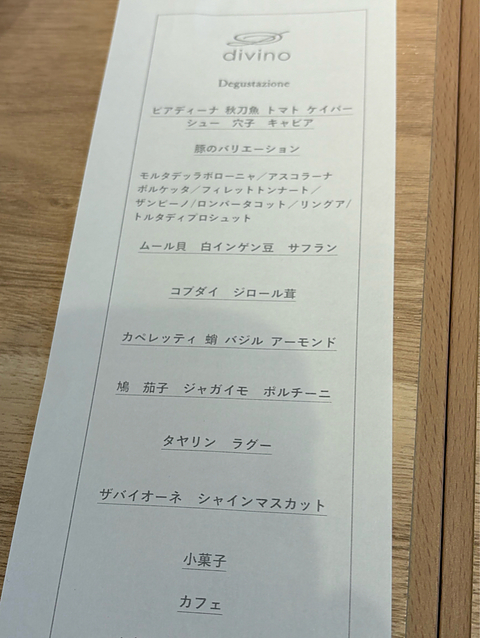 divino
Degustazione
ピアディーナ 秋刀魚 トマト ケイパー
シュー 穴子 キャビア
豚のバリエーション
モルタデッラボローニャ／アスコラーナ
ポルケッタ／フィレットトンナート／
ザンピーノ/ロンバータコット／リングア/
トルタディプロシュット
ムール貝 白インゲン豆 サフラン
コブダイ ジロール茸
カペレッティ 蛸 バジル アーモンド
鳩 茄子 ジャガイモ ポルチーニ
タヤリン ラグー
ザバイオーネ シャインマスカット
小菓子
カフェ